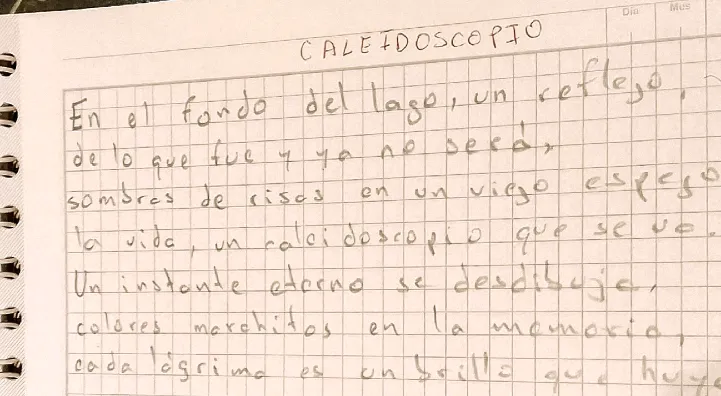 Día Mes
CALEIDOSCOPIO
En el fondo del lago, un reflejo,
de lo que fue y ya no será,
sombras de risas en un viejo espejo
la vida, un caleidoscopio que se va.
Un instante eterno se desdibuja,
colores marchitos en la memoria,
cada lágrima es un brillo que huye